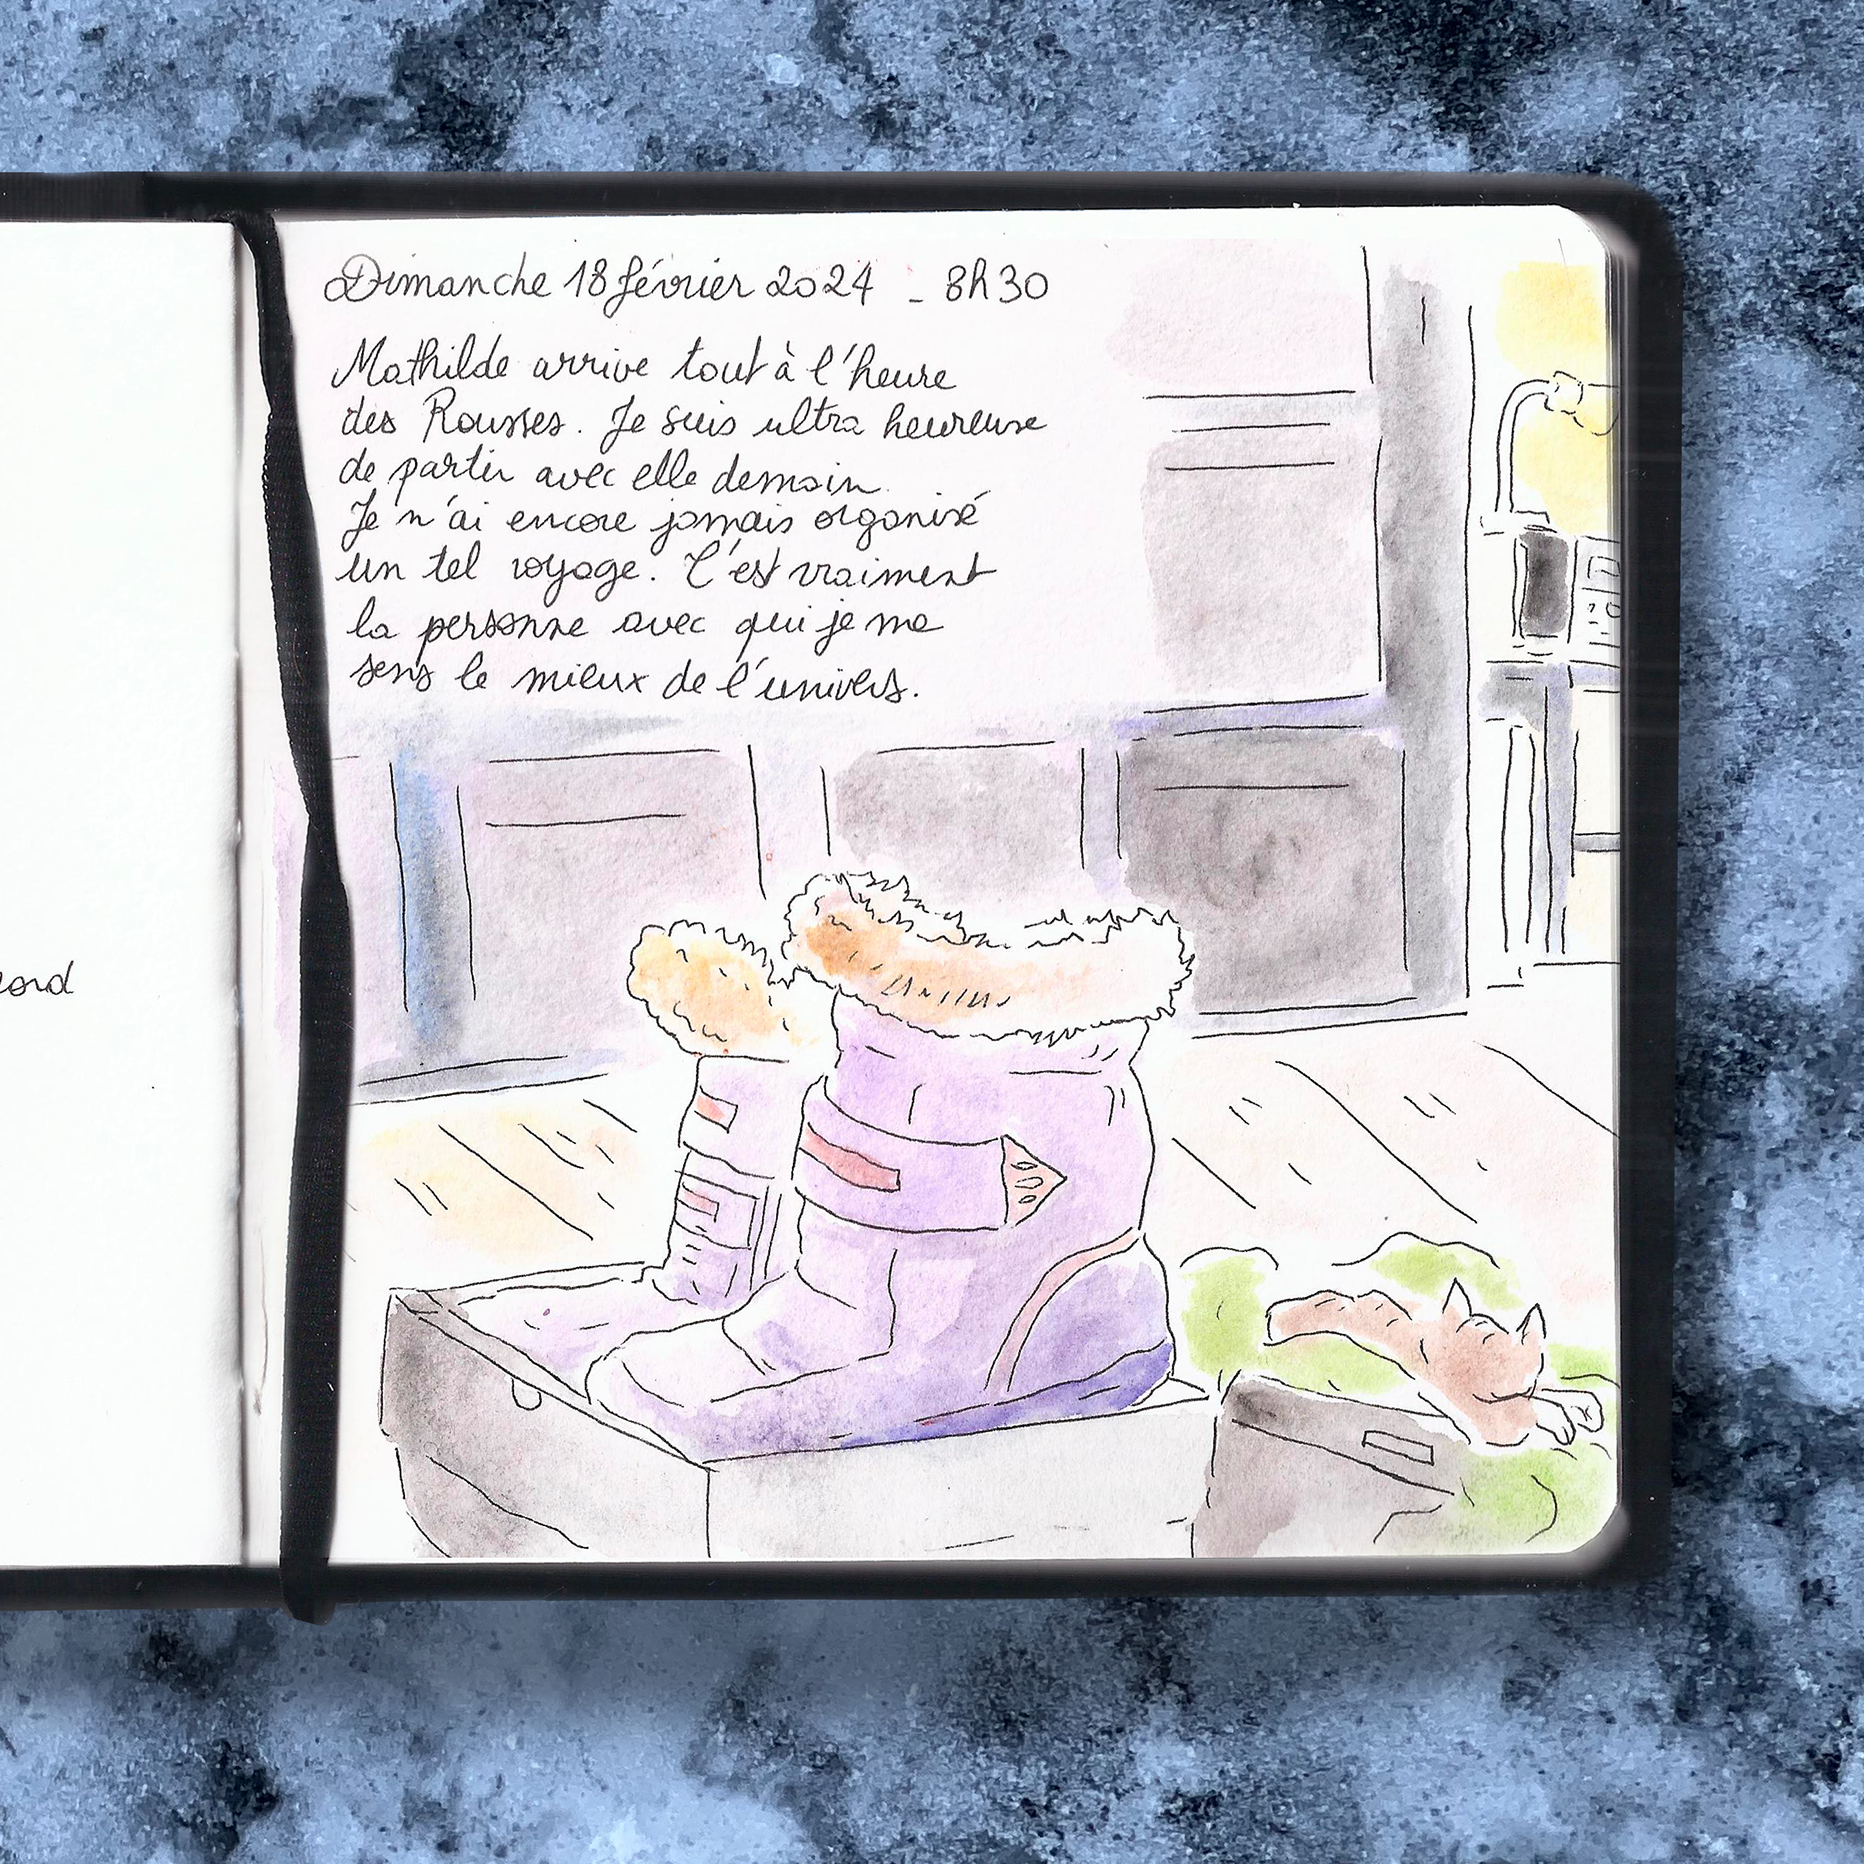 Dimanche 18 février 2024 - 8h30
Mathilde arrive tout à l'heure
des Rousses. Je suis ultra heureuse
de partir avec elle demain.
Je n'ai encore jamais organisé
un tel voyage. C'est vraiment
la personne avec qui je me
sens le mieux de l'univers.